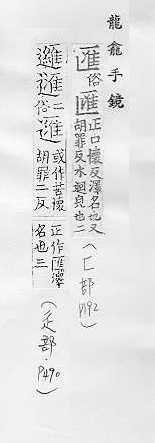 龍龕手鏡
匯俗匯正口懷反澤名也又
胡罪反水迴皃也二
(匚部
P192)
俗二或作苦懷
胡罪二反
正作匯澤
名也三
(辵部·
P490)